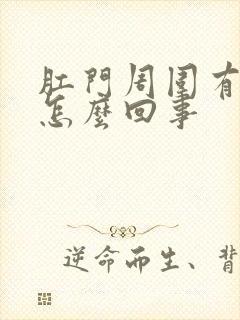 肛門周圍有
怎麼回事
逆命而生、背